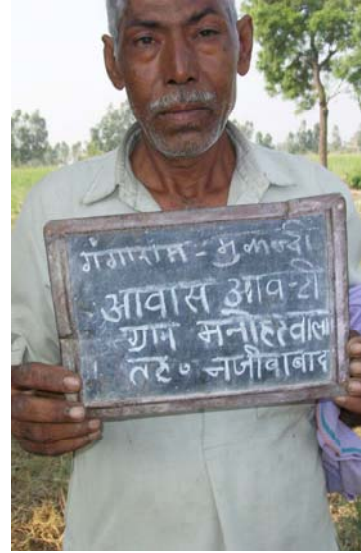 गंगाराम - मुकन्दी
आवास आवन्टी
ग्राम मनोहरवाला
तह० नजीबाबाद